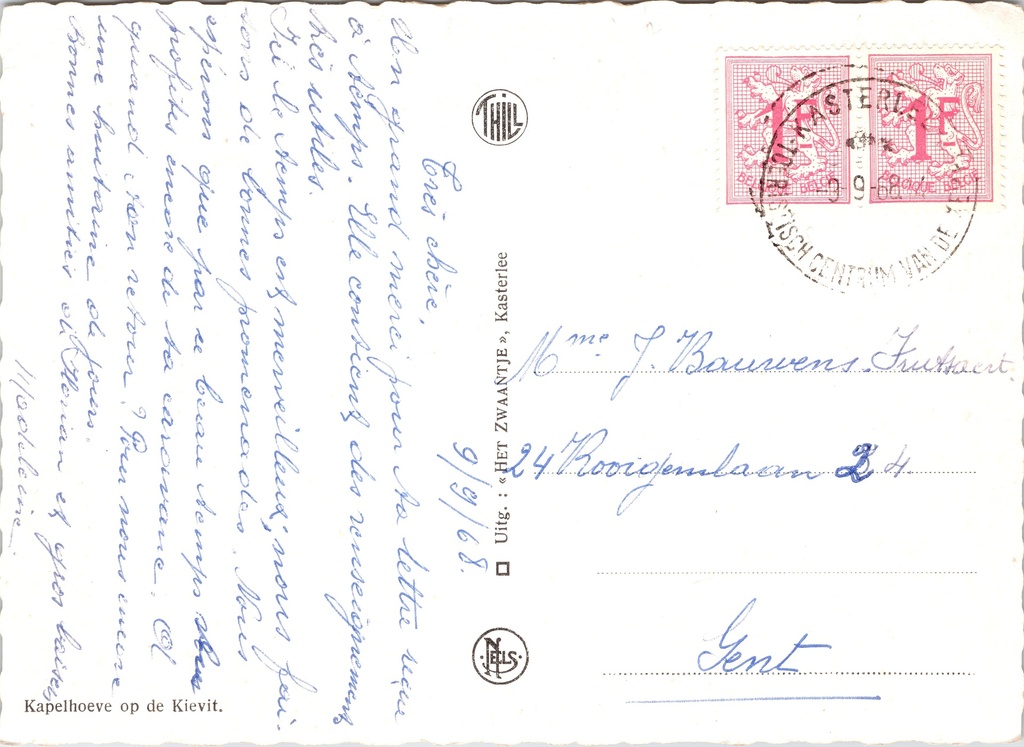 9/9/68.
Très chère,
Un grand merci pour ta lettre reçue
à temps. Elle contient des renseignements
très utiles.
Ici le temps est merveilleux; nous fai-
sons de bonnes promenades. Nous
espérons que par ce beau temps
profites encore de ta caravane. Et
quand ton retour? Pour nous encore
une huitaine de jours.
Bonnes amitiés de et gros baisers
Madeleine.
Kapelhoeve op de Kievit.
THILL
Uitg.: «HET ZWAANTJE», Kasterlee
NELS
1F 1F
BELGIQUE BELGIË BELGIQUE BELGIË
KASTERLEE
-9-9-68
TOERISTISCH CENTRUM VAN DE KEMPEN
Mme J. Bauwens-Frutsaert
24 Kooigemlaan 24
Gent